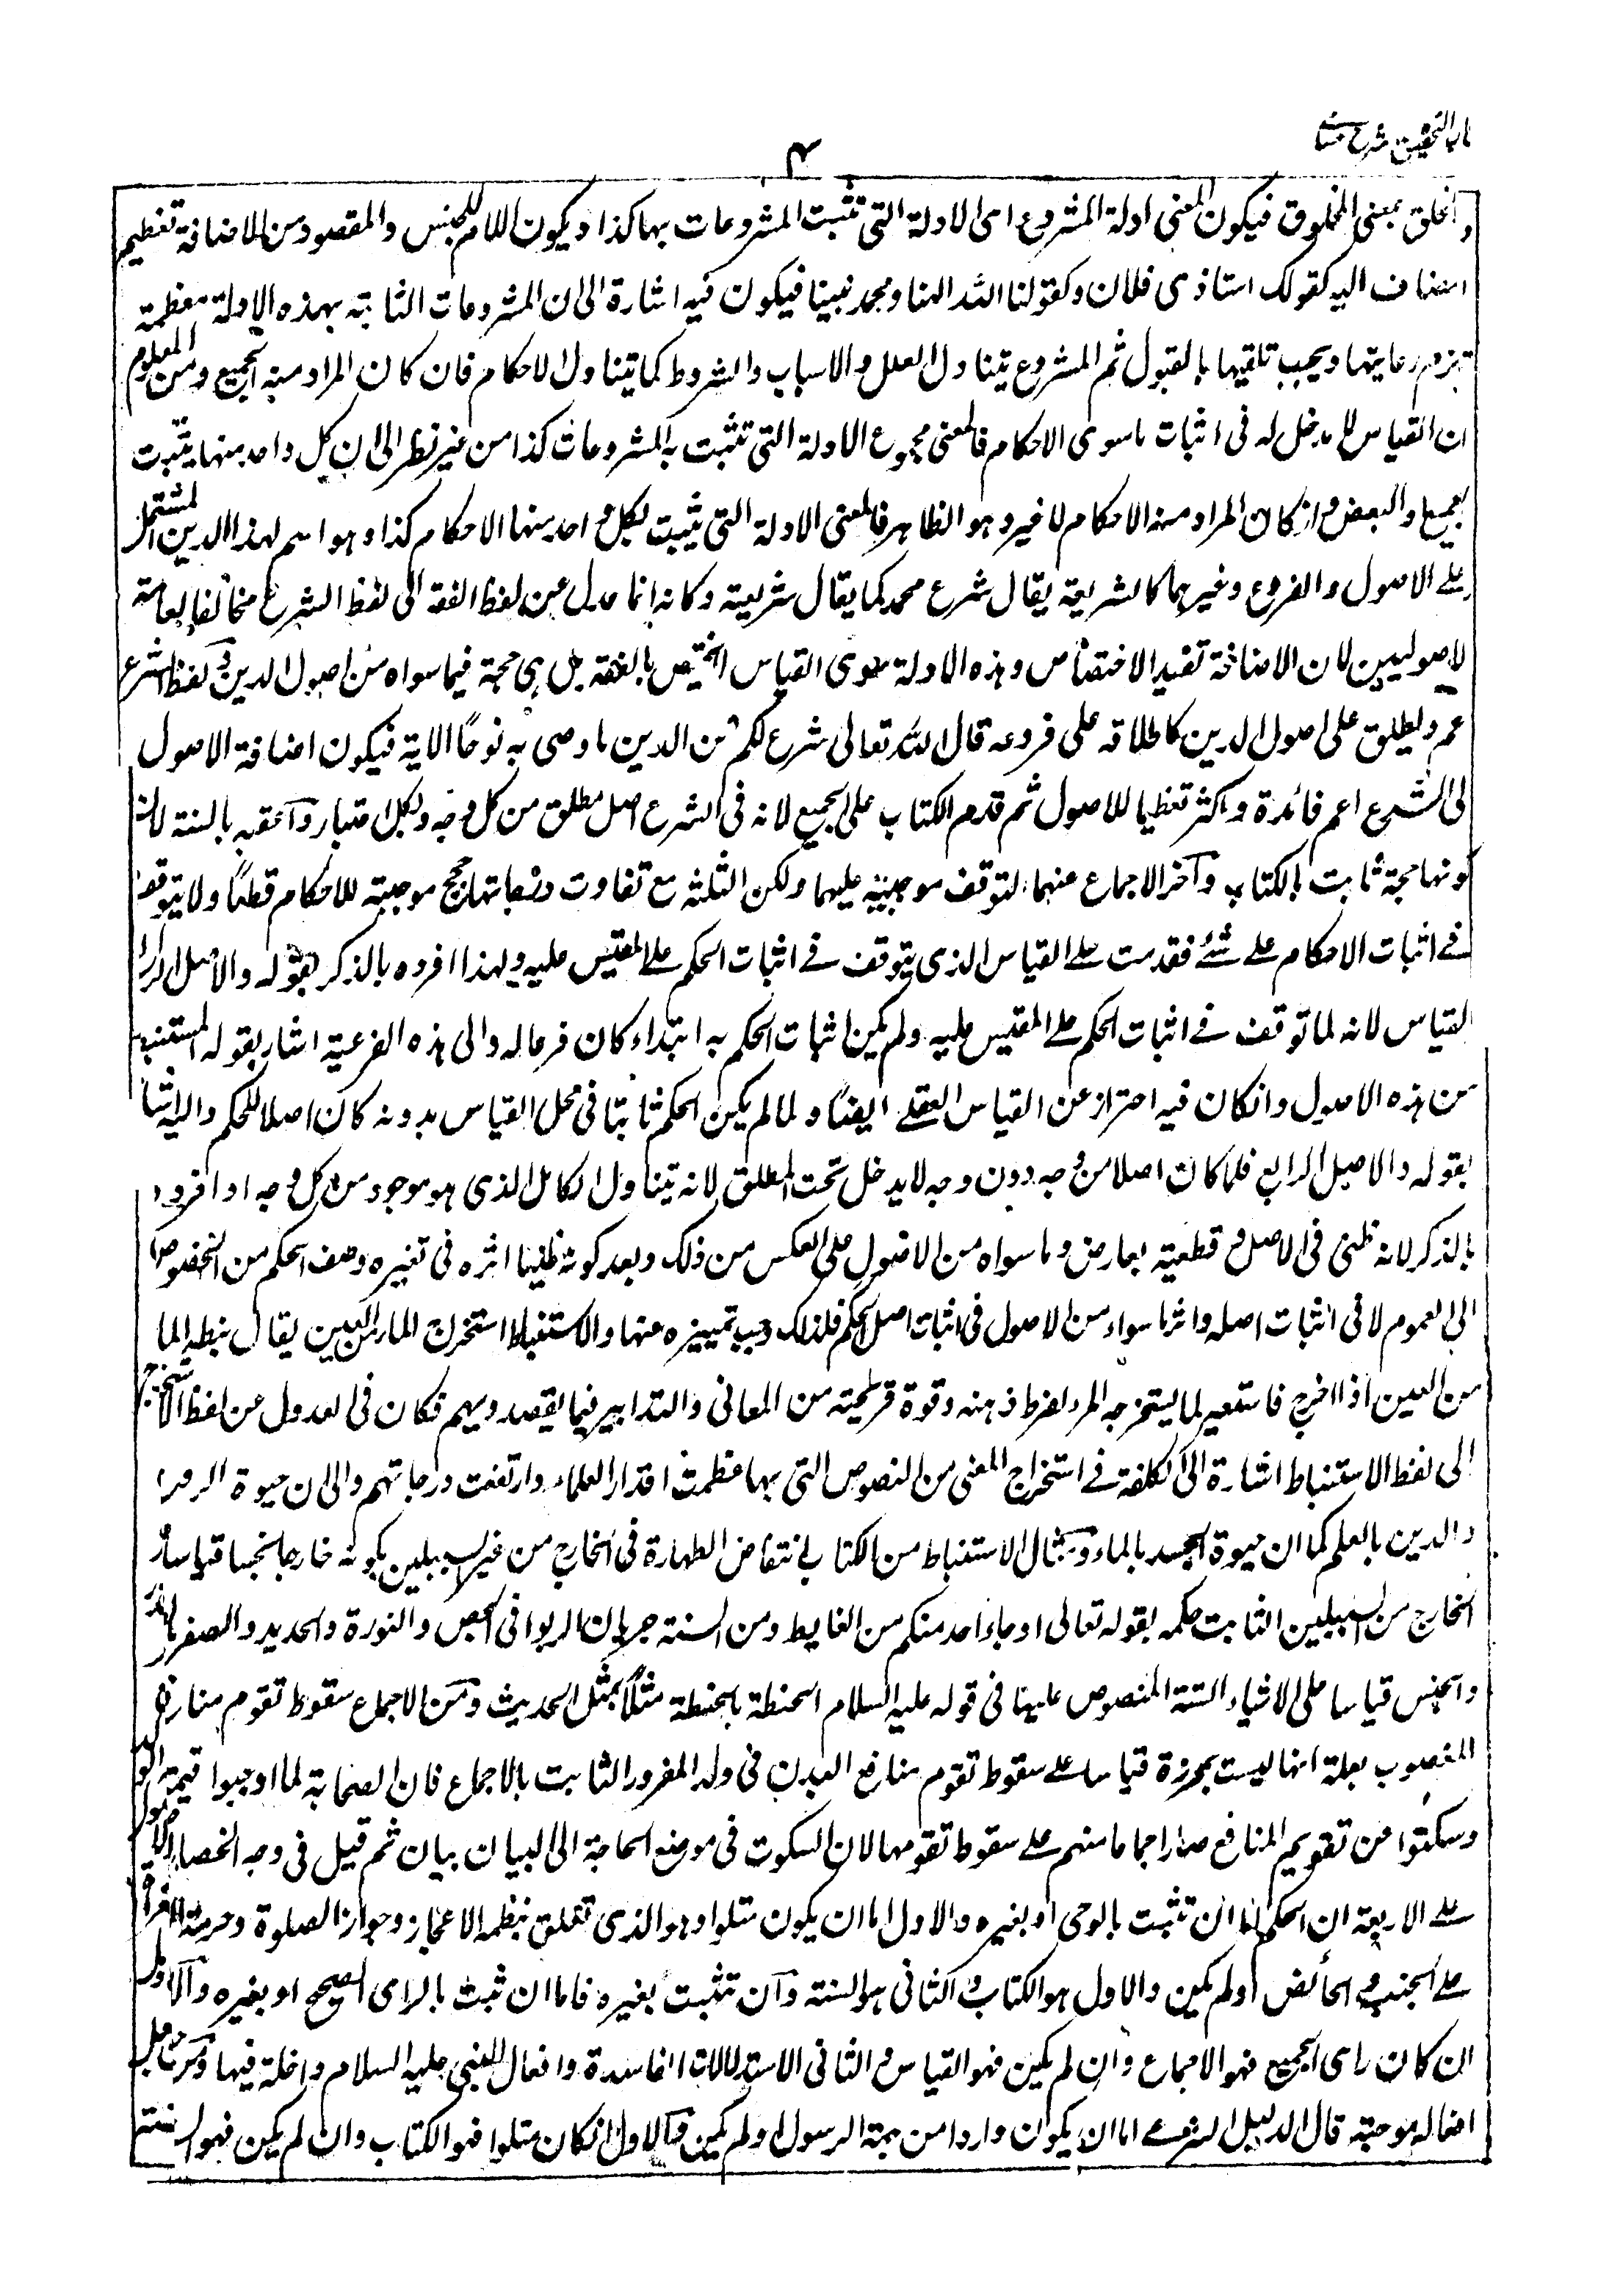 كتاب التحقيق شرح حسامي
۴
والخلق بمعنى المخلوق فيكون المعنى ادلة المشروع اى الادلة التى تثبت المشروعات بها كذا ويكون اللام للجنس والمقصود من الاضافة تعظيم
المضاف اليه كقولك استاذى فلان وكقولنا الله الهنا ومحمد نبينا فيكون فيه اشارة الى ان المشروعات الثابتة بهذه الادلة معظمة
تلزم رعايتها ويجب تلقيها بالقبول ثم المشروع يتناول العلل والاسباب والشروط كما يتناول الاحكام فان كان المراد منه الجميع ومن المعلوم
ان القياس لا مدخل له فى اثبات ما سوى الاحكام فالمعنى مجموع الادلة التى تثبت به المشروعات كذا من غير نظر الى ان كل واحد منها يثبت
الجميع والبعض وان كان المراد منه الاحكام لا غير وهو الظاهر فالمعنى الادلة التى يثبت بكل واحد منها الاحكام كذا وهو اسم لهذا الدين المشتمل
على الاصول والفروع وغيرهما كالشريعة يقال شرع محمد كما يقال شريعته وكانه انما عدل عن لفظ الفقه الى لفظ الشرع مخالفا لعامة
الاصوليين لان الاضافة تفيد الاختصاص وهذه الادلة سوى القياس لا تختص بالفقه بل هى حجة فيما سواه من اصول الدين ولفظ الشرع
اعم ويطلق على اصول الدين كاطلاقه على فروعه قال الله تعالى شرع لكم من الدين ما وصى به نوحًا الاية فيكون اضافة الاصول
الى الشرع اعم فائدة واكثر تعظيما للاصول ثم قدم الكتاب على الجميع لانه فى الشرع اصل مطلق من كل وجه وبكل اعتبار وآعقبه بالسنة لان
كونها حجة ثابت بالكتاب وآخر الاجماع عنهما لتوقف موجبيته عليهما ولكن الثلثة مع تفاوت درجاتها حجج موجبة للاحكام قطعًا ولا يتوقف
فے اثبات الاحكام علے شئ فقدمت علے القياس الذى يتوقف فے اثبات الحكم علے المقيس عليه ولهذا افرده بالذكر بقوله والاصل الرابع
القياس لانه لما توقف فے اثبات الحكم علے المقيس عليه ولم يكن اثبات الحكم به ابتداء كان فرعا له والى هذه الفرعية اشار بقوله المستنبط
من هذه الاصول وانكان فيه احتراز عن القياس العقلے ايضًا ولما لم يكن الحكم ثابتا فى محل القياس بدونه كان اصلا للحكم واليه اشار
بقوله والاصل الرابع فلما كان اصلا من وجه دون وجه لا يدخل تحت المطلق لانه يتناول الكامل الذى هو موجود من كل وجه او افرده
بالذكر لانه ظنى فى الاصل وقطعيته بعارض وما سواه من الاصول على العكس من ذلك وبعد كونه ظنيا اثره فى تغيير وصف الحكم من الخصوص
الى العموم لا فى اثبات اصله واثر ما سواه من الاصول فى اثبات اصل الحكم فلذلك وجب تمييزه عنها والاستنباط استخراج الماء من العين يقال نبط الماء
من العين اذا اخرج فاستعير لما يستخرجه المرء بفرط ذهنه وقوة قريحته من المعانى والتدابير فيما يقصد ويهم فكان فى العدول عن لفظ الاستخراج
الى لفظ الاستنباط اشارة الى الكلفة فے استخراج المعنى من النصوص التى بها عظمت اقدار العلماء وارتفعت درجاتهم والى ان حيوة الروح
والدين بالعلم كما ان حيوة الجسد بالماء ومثال الاستنباط من الكتاب انتقاض الطهارة فى الخارج من غير السبيلين بكونه خارجا نجسا قياسا على
الخارج من السبيلين الثابت حكمه بقوله تعالى او جاء احد منكم من الغايط ومن السنة جريان الربوا فى الجص والنورة والحديد والصفر بالقدر
والجنس قياسا على الاشياء الستة المنصوص عليها فى قوله عليه السلام الحنطة بالحنطة مثلًا بمثل الحديث ومن الاجماع سقوط تقوم منافع
المغصوب بعلة انها ليست بمحرزة قياسا علے سقوط تقوم منافع البدن فى ولد المغرور الثابت بالاجماع فان الصحابة لما اوجبوا قيمة الولد
وسكتوا عن تقويم المنافع صار اجماعا منهم علے سقوط تقومها لان السكوت فى موضع الحاجة الى البيان بيان ثم قيل فى وجه انحصار الاصول
علے الاربعة ان الحكم اما ان تثبت بالوحى او بغيره والاول اما ان يكون متلوا وهو الذى تعلق بنظمه الاعجاز وجواز الصلوة وحرمة القراءة
علے الجنب والحائض او لم يكن والاول هو الكتاب والثانى هو السنة وآن تثبت بغيره فاما ان ثبت بالراى الصحيح او بغيره والاول
ان كان راى الجميع فهو الاجماع وان لم يكن فهو القياس والثانى الاستدلالات الفاسدة وافعال النبى عليه السلام داخلة فيها ومن جعل
افعاله موجبة قال الدليل الشرعے اما ان يكون واردا من جهة الرسول او لم يكن والاول انكان متلوا فهو الكتاب وان لم يكن فهو السنة